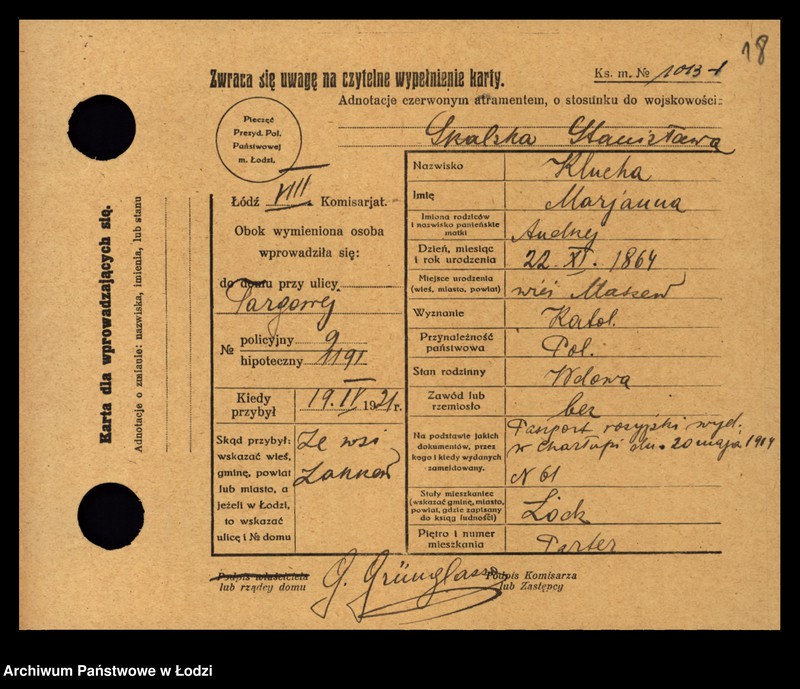 18
Zwraca się uwagę na czytelne wypełnienie karty.
Ks. m. № 1013-I
Adnotacje czerwonym atramentem, o stosunku do wojskowości:
Skalska Stanisława
Pieczęć
Prezyd. Pol.
Państwowej
m. Łodzi.
Łódź VIII Komisarjat.
Obok wymieniona osoba
wprowadziła się:
do domu przy ulicy
Targowej
№ policyjny 9
hipoteczny 1191
Kiedy przybył 19. IV 1921 r.
Skąd przybył:
wskazać wieś,
gminę, powiat
lub miasto, a
jeżeli w Łodzi,
to wskazać
ulicę i № domu
Ze wsi
Nazwisko Klucha
Imię Marjanna
Imiona rodziców
i nazwisko panieńskie
matki
Andrzej
Dzień, miesiąc
i rok urodzenia
22. XI. 1864
Miejsce urodzenia
(wieś, miasto, powiat)
wieś Maszew
Wyznanie Katol.
Przynależność
państwowa
Pol.
Stan rodzinny Wdowa
Zawód lub
rzemiosło
bez
Na podstawie jakich
dokumentów, przez
kogo i kiedy wydanych
zameldowany.
Paszport rosyjski wyd.
w Charłupi dn. 20 maja 1914
N 61
Stały mieszkaniec
(wskazać gminę, miasto,
powiat, gdzie zapisany
do ksiąg ludności)
Piętro i numer
mieszkania
Parter
Karta dla wprowadzających się.
Adnotacje o zmianie: nazwiska, imienia, lub stanu
Podpis właściciela
lub rządcy domu
G. Grünglass
Podpis Komisarza
lub Zastępcy
Archiwum Państwowe w Łodzi